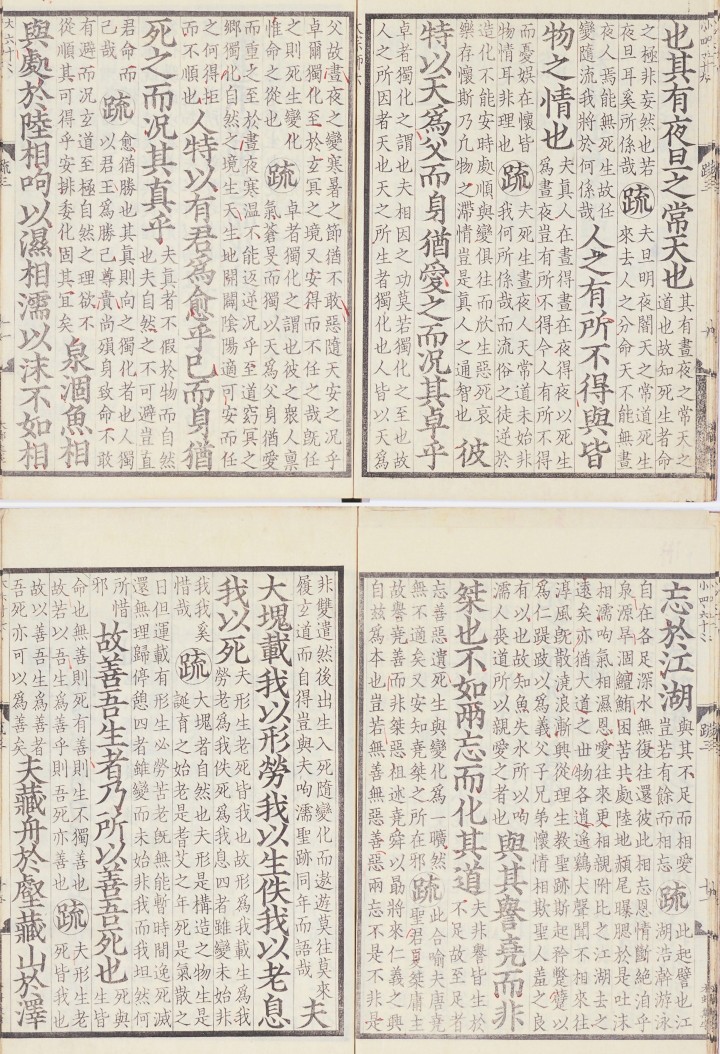 也其有夜旦之常天也其有晝夜之常天之道也故知死生者命
之極非妄然也若夜旦耳奚所係哉疏夫旦明夜闇天之常道死生來去人之分命天不能無晝
夜人焉能無死生故任變隨流我將於何係哉人之有所不得與皆
物之情也夫真人在晝得晝在夜得夜以死生爲晝夜豈有所不得今人有所不得
而憂娛在懷皆物情耳非理也疏夫死生晝夜人天常道未始非我何所係哉而流俗之徒逆於
造化不能安時處順與變俱往而欣生惡死哀樂存懷斯乃凢物之滯情豈是真人之通智也彼
特以天爲父而身猶愛之而况其卓乎
卓者獨化之謂也夫相因之功莫若獨化之至也故人之所因者天也天之所生者獨化也人皆以天爲
父故晝夜之變寒暑之節猶不敢惡隨天安之况乎卓爾獨化至於玄冥之境又安得而不任之哉旣任
之則死生變化惟命之從也疏卓者獨化之謂也彼之衆人禀氣蒼旻而獨以天爲父身猶愛
而重之至於晝夜寒温不能返逆况乎至道窈冥之鄉獨化自然之境生天生地開闢陰陽適可安而任
之何得拒而不順也人特以有君爲愈乎己而身猶
死之而况其真乎夫真者不假於物而自然也夫自然之不可避豈直
君命而己哉疏愈猶勝也其真則向之獨化者也人獨以君王爲勝己尊貴尚殞身致命不敢
有避而况玄道至極自然之理欲不從順其可得乎安排委化固其宜矣泉涸魚相
與處於陸相呴以濕相濡以沫不如相
忘於江湖與其不足而相愛豈若有餘而相忘疏此起譬也江湖浩瀚游泳
自在各足深水無復往還彼此相忘恩情斷絶洎乎泉源旱涸鱣鮪困苦共處陸地頳尾曝腮於是吐沫
相濡呴氣相濕恩愛往來更相親附比之江湖去之遠矣亦猶大道之世物各逍遥鷄犬聲聞不相來往
淳風旣散澆浪漸興從理生教聖跡斯起矜蹩躠以爲仁踶跂以爲義父子兄弟懷情相欺聖人羞之良
有以也故知魚失水所以呴濡人喪道所以親愛之者也與其譽堯而非
桀也不如兩忘而化其道夫非譽皆生於不足故至足者
忘善惡遺死生與變化爲一曠然無不適矣又安知堯桀之所在邪疏此合喻夫唐堯聖君夏桀庸主
故譽堯善而非桀惡祖述堯舜以勗將來仁義之興自兹爲本也豈若無善無惡善惡兩忘不是不非是
非雙遣然後出生入死隨變化而遨遊莫往莫來履玄道而自得豈與夫呴濡聖跡同年而語哉夫
大塊載我以形勞我以生佚我以老息
我以死夫形生老死皆我也故形爲我載生爲我勞老爲我佚死爲我息四者雖變未始非
我我奚惜哉疏大塊者自然也夫形是構造之物生是誕育之始老是耆艾之年死是氣散之
日但運載有形生必勞苦老旣無能暫時間逸死滅還無理歸停憩四者雖變而未始非我而我坦然何
所惜邪故善吾生者乃所以善吾死也死與生皆
命也無善則死有善則生不獨善也故若以吾生爲善乎則吾死亦善也疏夫形生老死皆我也
故以善吾生爲善者吾死亦可以爲善矣夫藏舟於壑藏山於澤